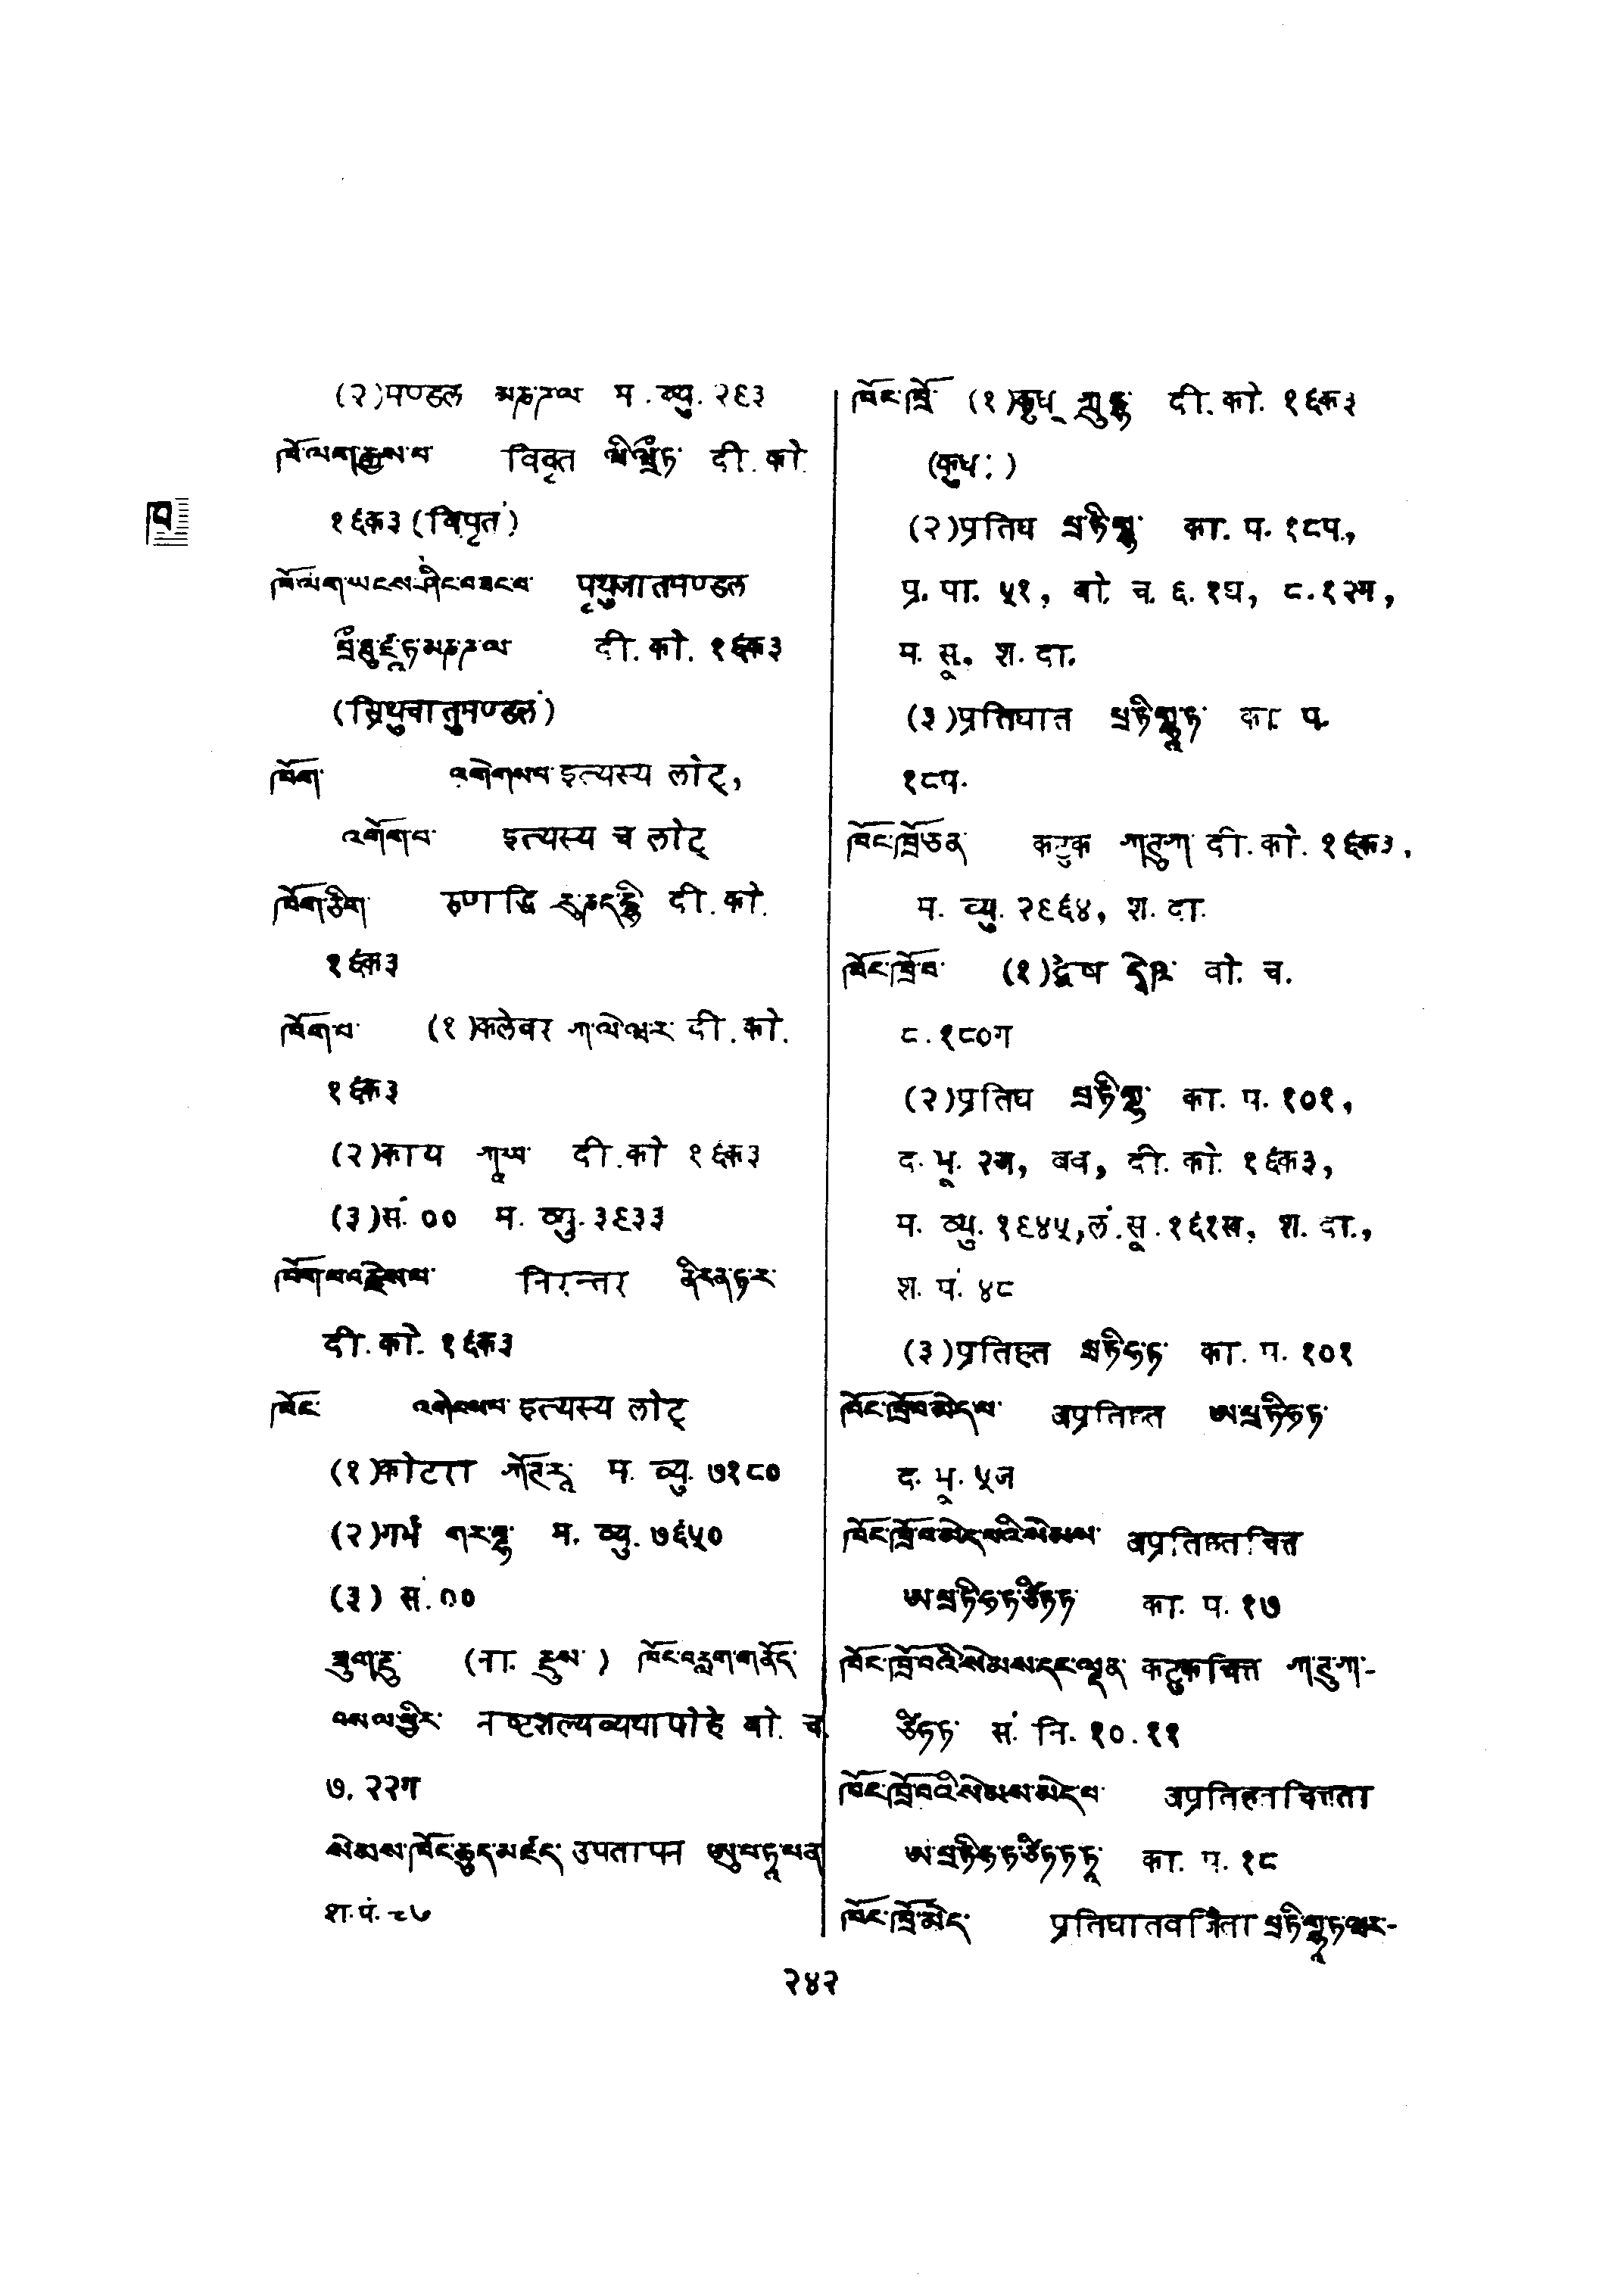 (२)मण्डल མཎྜལ म. व्यु. २९३
ཁོ་ལག་རྒྱས་པ་ विवृत བིབྲྀཏ་ दी. को.
१६क३ (विपृतं)
ཁོ་ལག་ཡངས་ཤིང་བཟང་བ་ पृथुजातमण्डल
པྲྀཐུ་ཛཱཏ་མཎྜལ་ दी. को. १६क३
(स्रिथुचातुमण्डलं)
ཁོག་ འགེགསཔ་ इत्यस्य लोट्,
འགོག་པ་ इत्यस्य च लोट्
ཁོག་ཅིག་ रुणद्धि རུཎདྡྷི दी. को.
१६क३
ཁོག་པ་ (१)कलेवर ཀ་ལེ་བར་ दी. को.
१६क३
(२)काय ཀཱཡ་ दी. को १६क३
(३)सं. ०० म. व्यु. ३९३३
निरन्तर ནིརནྟར་
दी. को. १६क३
ཁོང་ འགེབསཔ་ इत्यस्य लोट्
(१)कोटरा ཀོཊརཱ་ म. व्यु. ७१८०
(२)गर्भ གརྦྷ་ म. व्यु. ७६५०
(३) सं. ००
ཟུག་རྔུ་ (ना. རྔུས་) ཁོང་བརླག་གནོད་
བསལ་ཕྱིར་ नष्टशल्यव्यथापोहे बो. च.
७. २२ग
སེམས་ཁོང་ཆུད་མཛད་ उपतापन ཨུ་པ་ཏཱ་པན
श. पं.
ཁོང་ཁྲོ་ (१)क्रुध् ཀྲུདྷ་ दी. को. १६क३
(कृधः)
(२)प्रतिघ པྲཏིགྷ་ का. प. १८प.,
प्र. पा. ५१, बो. च. ६. १घ, ८. १२ग,
म. सू. श. दा.
(३)प्रतिघात པྲཏིགྷཱཏ་ का. प.
१८प.
ཁོང་ཁྲོ་ཅན་ कटुक ཀཊུཀ दी. को. १६क३,
म. व्यु. २९६४, श. दा.
ཁོང་ཁྲོ་བ་ (१)द्वेष དྭེཥ་ बो. च.
८. १८०ग
(२)प्रतिघ པྲཏིགྷ་ का. प. १०१,
द. भू. २ग, बव, दी. को. १६क३,
म. व्यु. १९४५, लं. सू. १६१ख, श. दा.,
श. पं. ४८
(३)प्रतिहत པྲཏིཧཏ་ का. प. १०१
ཁོང་ཁྲོ་བ་མེད་པ་ अप्रतिहत ཨ་པྲཏིཧཏ་
द. भू. ५ज
ཁོང་ཁྲོ་བ་མེད་པའི་སེམས་ अप्रतिहतचित्त
ཨ་པྲཏིཧཏ་ཙིཏྟ་ का. प. १७
ཁོང་ཁྲོ་བའི་སེམས་དང་ལྡན་ कटुकचित्त ཀ་ཊུ་ཀ་-
ཙིཏྟ་ सं. नि. १०. ११
ཁོང་ཁྲོ་བའི་སེམས་མེད་པ་ अप्रतिहतचित्तता
ཨ་པྲཏིཧཏ་ཙིཏྟ་ཏཱ་ का. प. १८
ཁོང་ཁྲོ་མེད་ प्रतिघातवर्जिता པྲཏིགྷཱཏ་བར-
ཁ
२४२